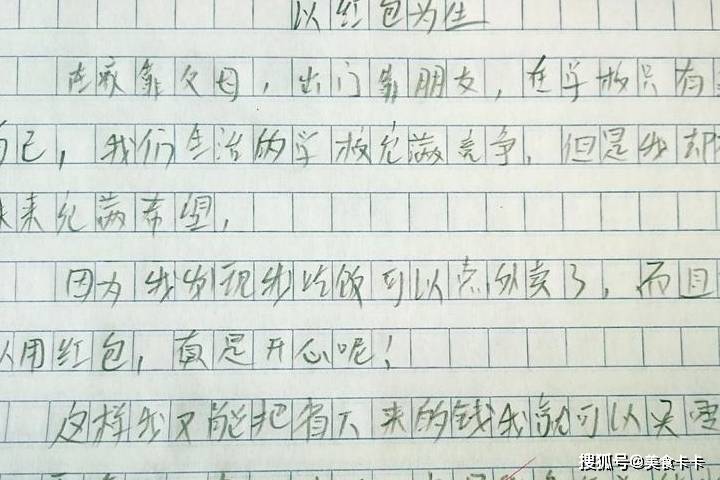 以红包为生
在家靠父母，出门靠朋友，在学校只有
自己，我们生活的学校充满竞争，但是我却
未来充满希望，
因为我发现我吃饭可以点外卖了，而且
以用红包，真是开心呢！
这样我又能把省下来的钱我就可以买零
搜狐号@美食卡卡